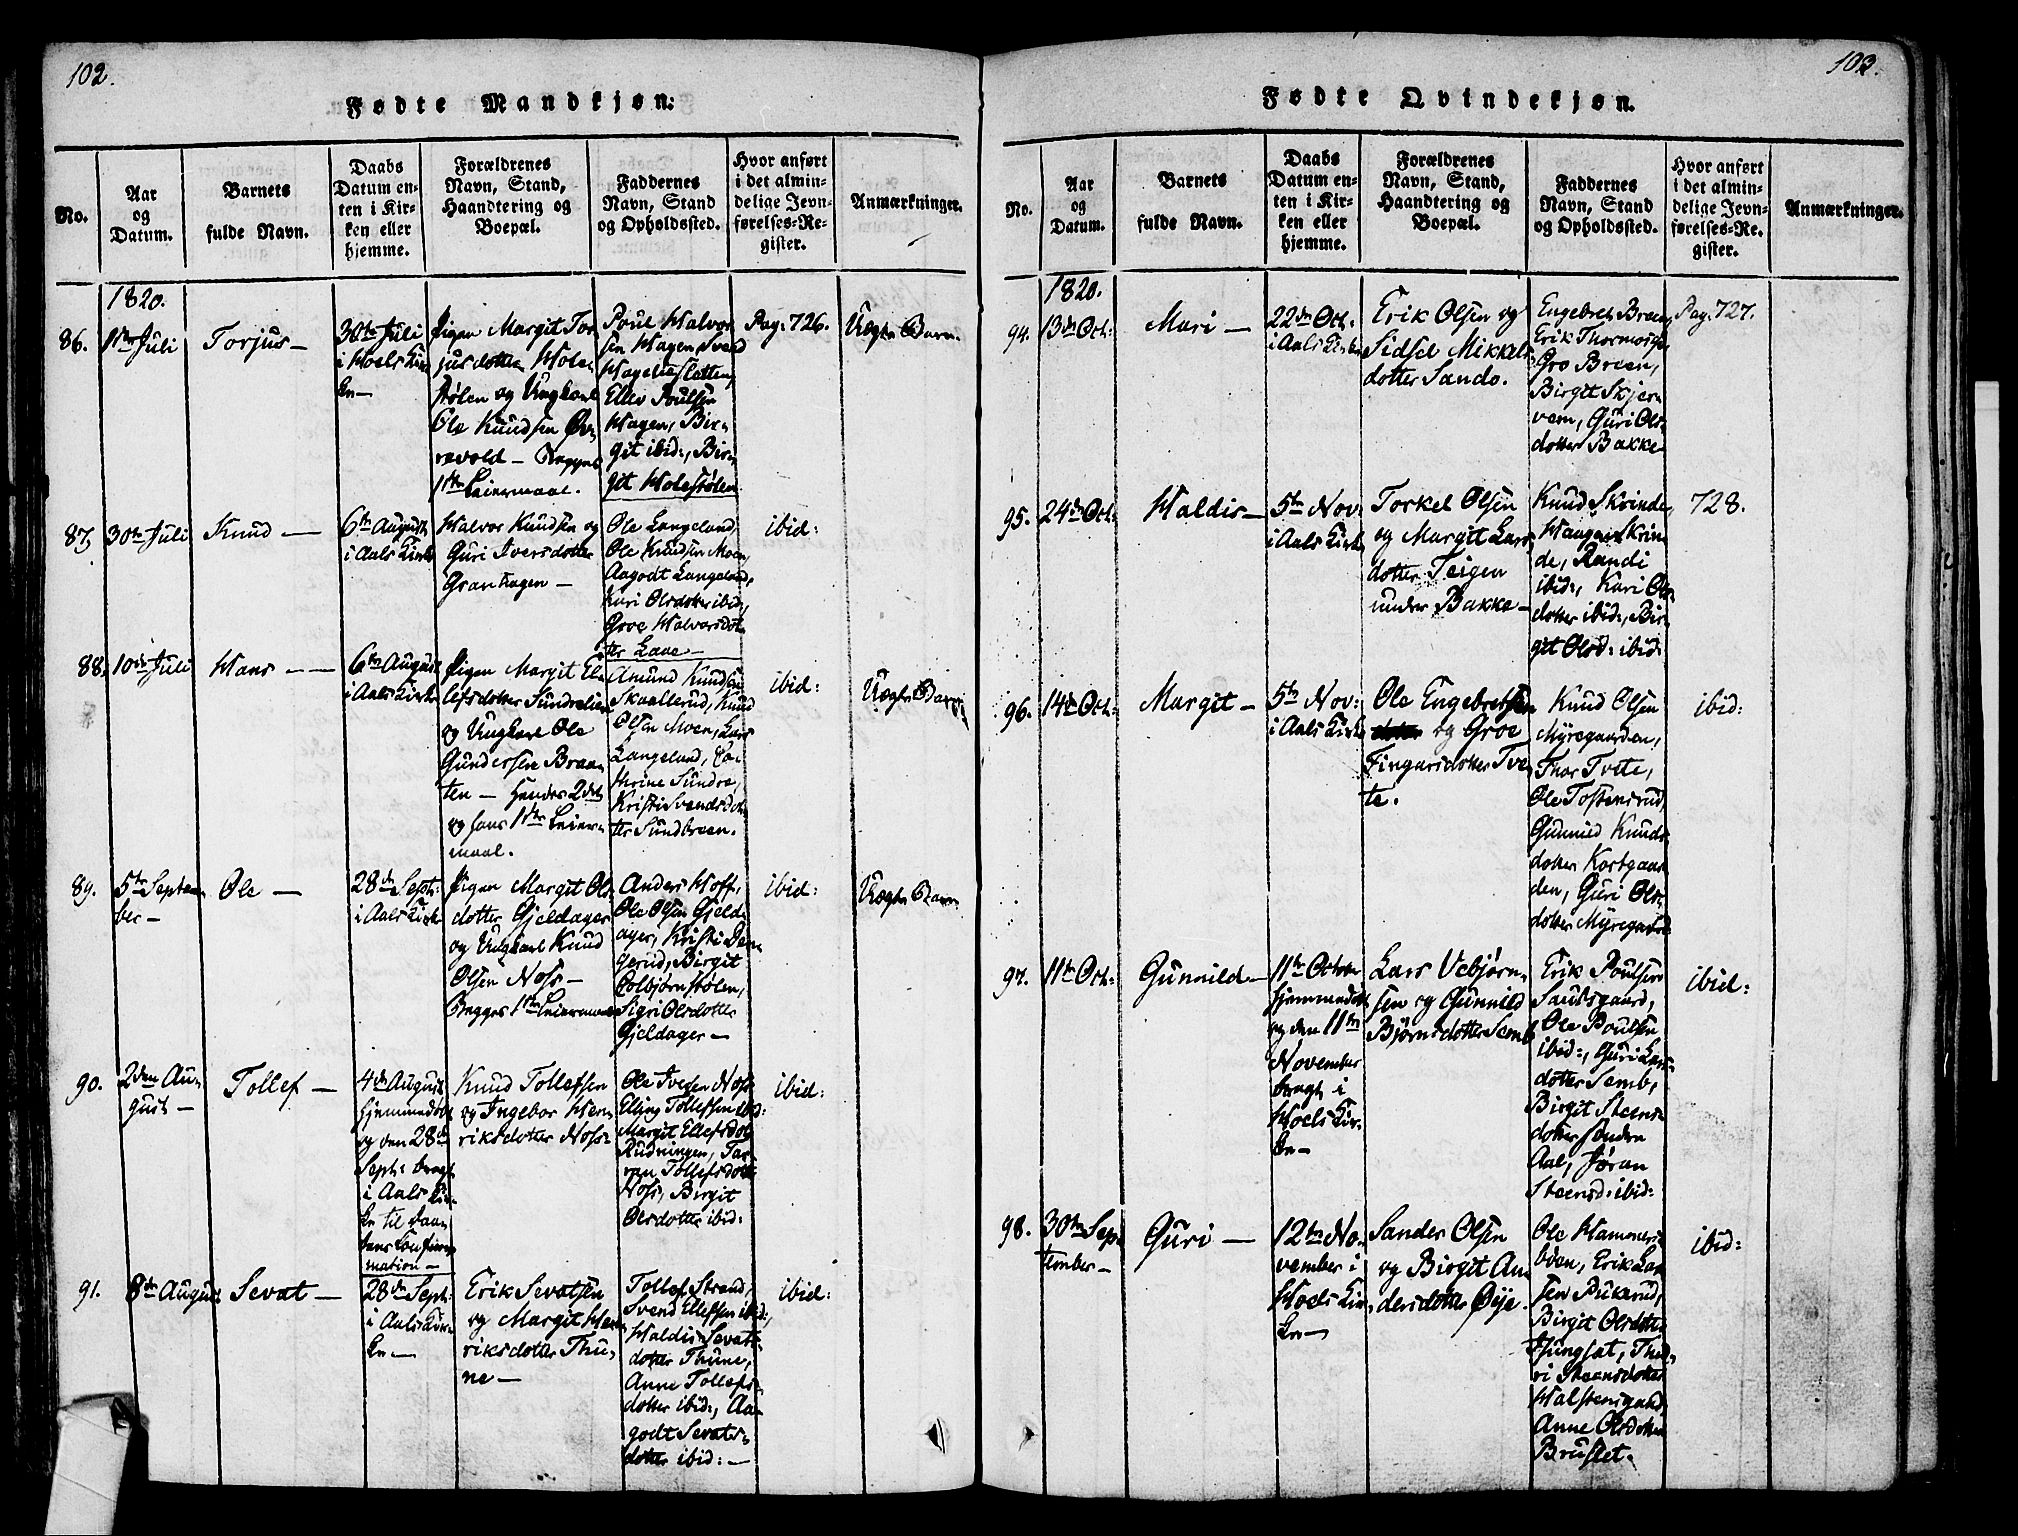 102.
Fødte Mandkjøn:
No.
Aar
og
Datum.
Barnets
fulde Navn.
Daabs
Datum en-
ten i Kir-
ken eller
hjemme.
Forældrenes
Navn, Stand,
Haandtering og
Boepæl.
Faddernes
Navn, Stand
og Opholdssted.
Hvor anført
i det almin-
delige Jevn-
førelses-Re-
gister.
Anmærkninger.
1820.
86.
11te Juli
Torjus —
30te Juli
i Hoels Kir
ke —
Pigen Margit Tor
jusdotter Hole
stølen og Ungkarl
Ole Knudsen Øv
revold — Begges
1ste Leiermaal.
Poul Halvor
sen Hagen, Svend
Hagelisletten,
Ellev Poulsen
Hagen, Bir-
git ibid:, Bir
git Holestølen
Pag: 726.
Uægte Barn.
87.
30te Juli
Knud —
6te August
i Aals Kirke
Halvor Knudsen og
Guri Iversdotter
Granhagen —
Ole Langeland,
Ole Knudsen Moen,
Aagodt Langeland,
Kari Olsdotter ibid,
Groe Halvorsdot
ter Lane —
ibid:
88.
10de Juli
Hans —
6te August
i Aals Kirke
Pigen Margit El
lefsdotter Sundrelien
og Ungkarl Ole
Gundersen Braa-
ten — hendes 2det
og hans 1ste Leier-
maal.
Amund Knudsen
Skaallerud, Knud
Olsen Moen, Lars
Langeland, Ca-
thrine Sundre,
Kristi Svendsdot
ter Sundbreen.
ibid:
Uægte Barn
89.
5te Septem
ber —
Ole —
28de Sept:
i Aals Kirke
Pigen Margit Ols
dotter Gjeldager
og Ungkarl Knud
Olsen Noss —
Begges 1ste Leiermaal
Anders Hoff,
Ole Olsen Gjeld
ager, Kristi Den
gerud, Birgit
Colbjørnstølen,
Sigri Olsdotter
Gjeldager —
ibid:
Uægte Barn
90.
2den Au-
gust —
Tollef —
4de August
hjemmedøbt
og den 28de
Sept: bragt
i Aals Kir-
ke til Daa-
bens Confir-
mation —
Knud Tollefsen
og Ingebor Hen
riksdotter Noss
Ole Iversen Noss
Elling Tollefsen ibid:
Margit Ellefsdot
Rudningen, Tar
ran Tollefsdotter
Noss, Birgit
Olsdotter ibid:
ibid:
91.
8de August
Sevat —
28de Sept:
i Aals Kir-
ke —
Erik Sevatsen
og Margit Hen
riksdotter Thu-
ne —
Tollef Strand,
Svend Ellefsen ibid:,
Haldis Sevats
dotter Thune,
Anne Tollefs
dotter ibid:, Aa-
godt Sevats-
dotter ibid: —
ibid:
103.
Fødte Qvindekjøn.
No.
Aar
og
Datum.
Barnets
fulde Navn.
Daabs
Datum en-
ten i Kir-
ken eller
hjemme.
Forældrenes
Navn, Stand,
Haandtering og
Boepæl.
Faddernes
Navn, Stand
og Opholdssted.
Hvor anført
i det almin-
delige Jevn-
førelses-Re-
gister.
Anmærkninger.
1820.
94.
13de Oct:
Mari —
22de Oct:
i Aals Kirke
Erik Olsen og
Sidsel Mikkels
dotter Sando.
Engebret Breen,
Erik Thormosgd
Gro Breen,
Birgit Skjer-
vem, Guri Ols
dotter Bakke
Pag. 727.
95.
24de Oct:
Haldis —
5te Nov:
i Aals Kirke
Torkel Olsen
og Margit Lars
dotter Teigen
under Bakke —
Knud Skrinde,
Haagen Skrin
de, Randi
ibid:, Kari Ols
dotter ibid:, Bir
git Olsd: ibid:
728.
96.
14de Oct:
Margit —
5te Nov:
i Aals Kirke
Ole Engebretsen
og Groe
Fingarsdotter Tve
te.
Knud Olsen
Myregaarden,
Thor Tvete,
Ole Tostensrud,
Gunnild Knuds
dotter Kortgaar
den, Guri Ols
dotter Myregaard
ibid:
97.
11te Oct:
Gunnild —
11te October
hjemmedøbt
og den 11te
November
bragt i
Hoels Kir-
ke —
Lars Vebjørn-
sen og Gunnild
Bjørnsdotter Semb
Erik Poulsen
Sausgaard,
Ole Poulsen
ibid:, Guri Lars
dotter Semb,
Birgit Steens
dotter søndre
Aal, Jøran
Steensd: ibid:
ibid:
98.
30te Sep-
tember —
Guri —
12te No-
vember i
Hoels Kir-
ke —
Sander Olsen
og Birgit An
dersdotter Øye.
Ole Hammers
bøen, Erik Lar
sen Pukerud,
Birgit Olsdotter
Tjungsat, Thu-
ri Steensdotter
Halstensgaard,
Anne Olsdotter
Brustet.
ibid: